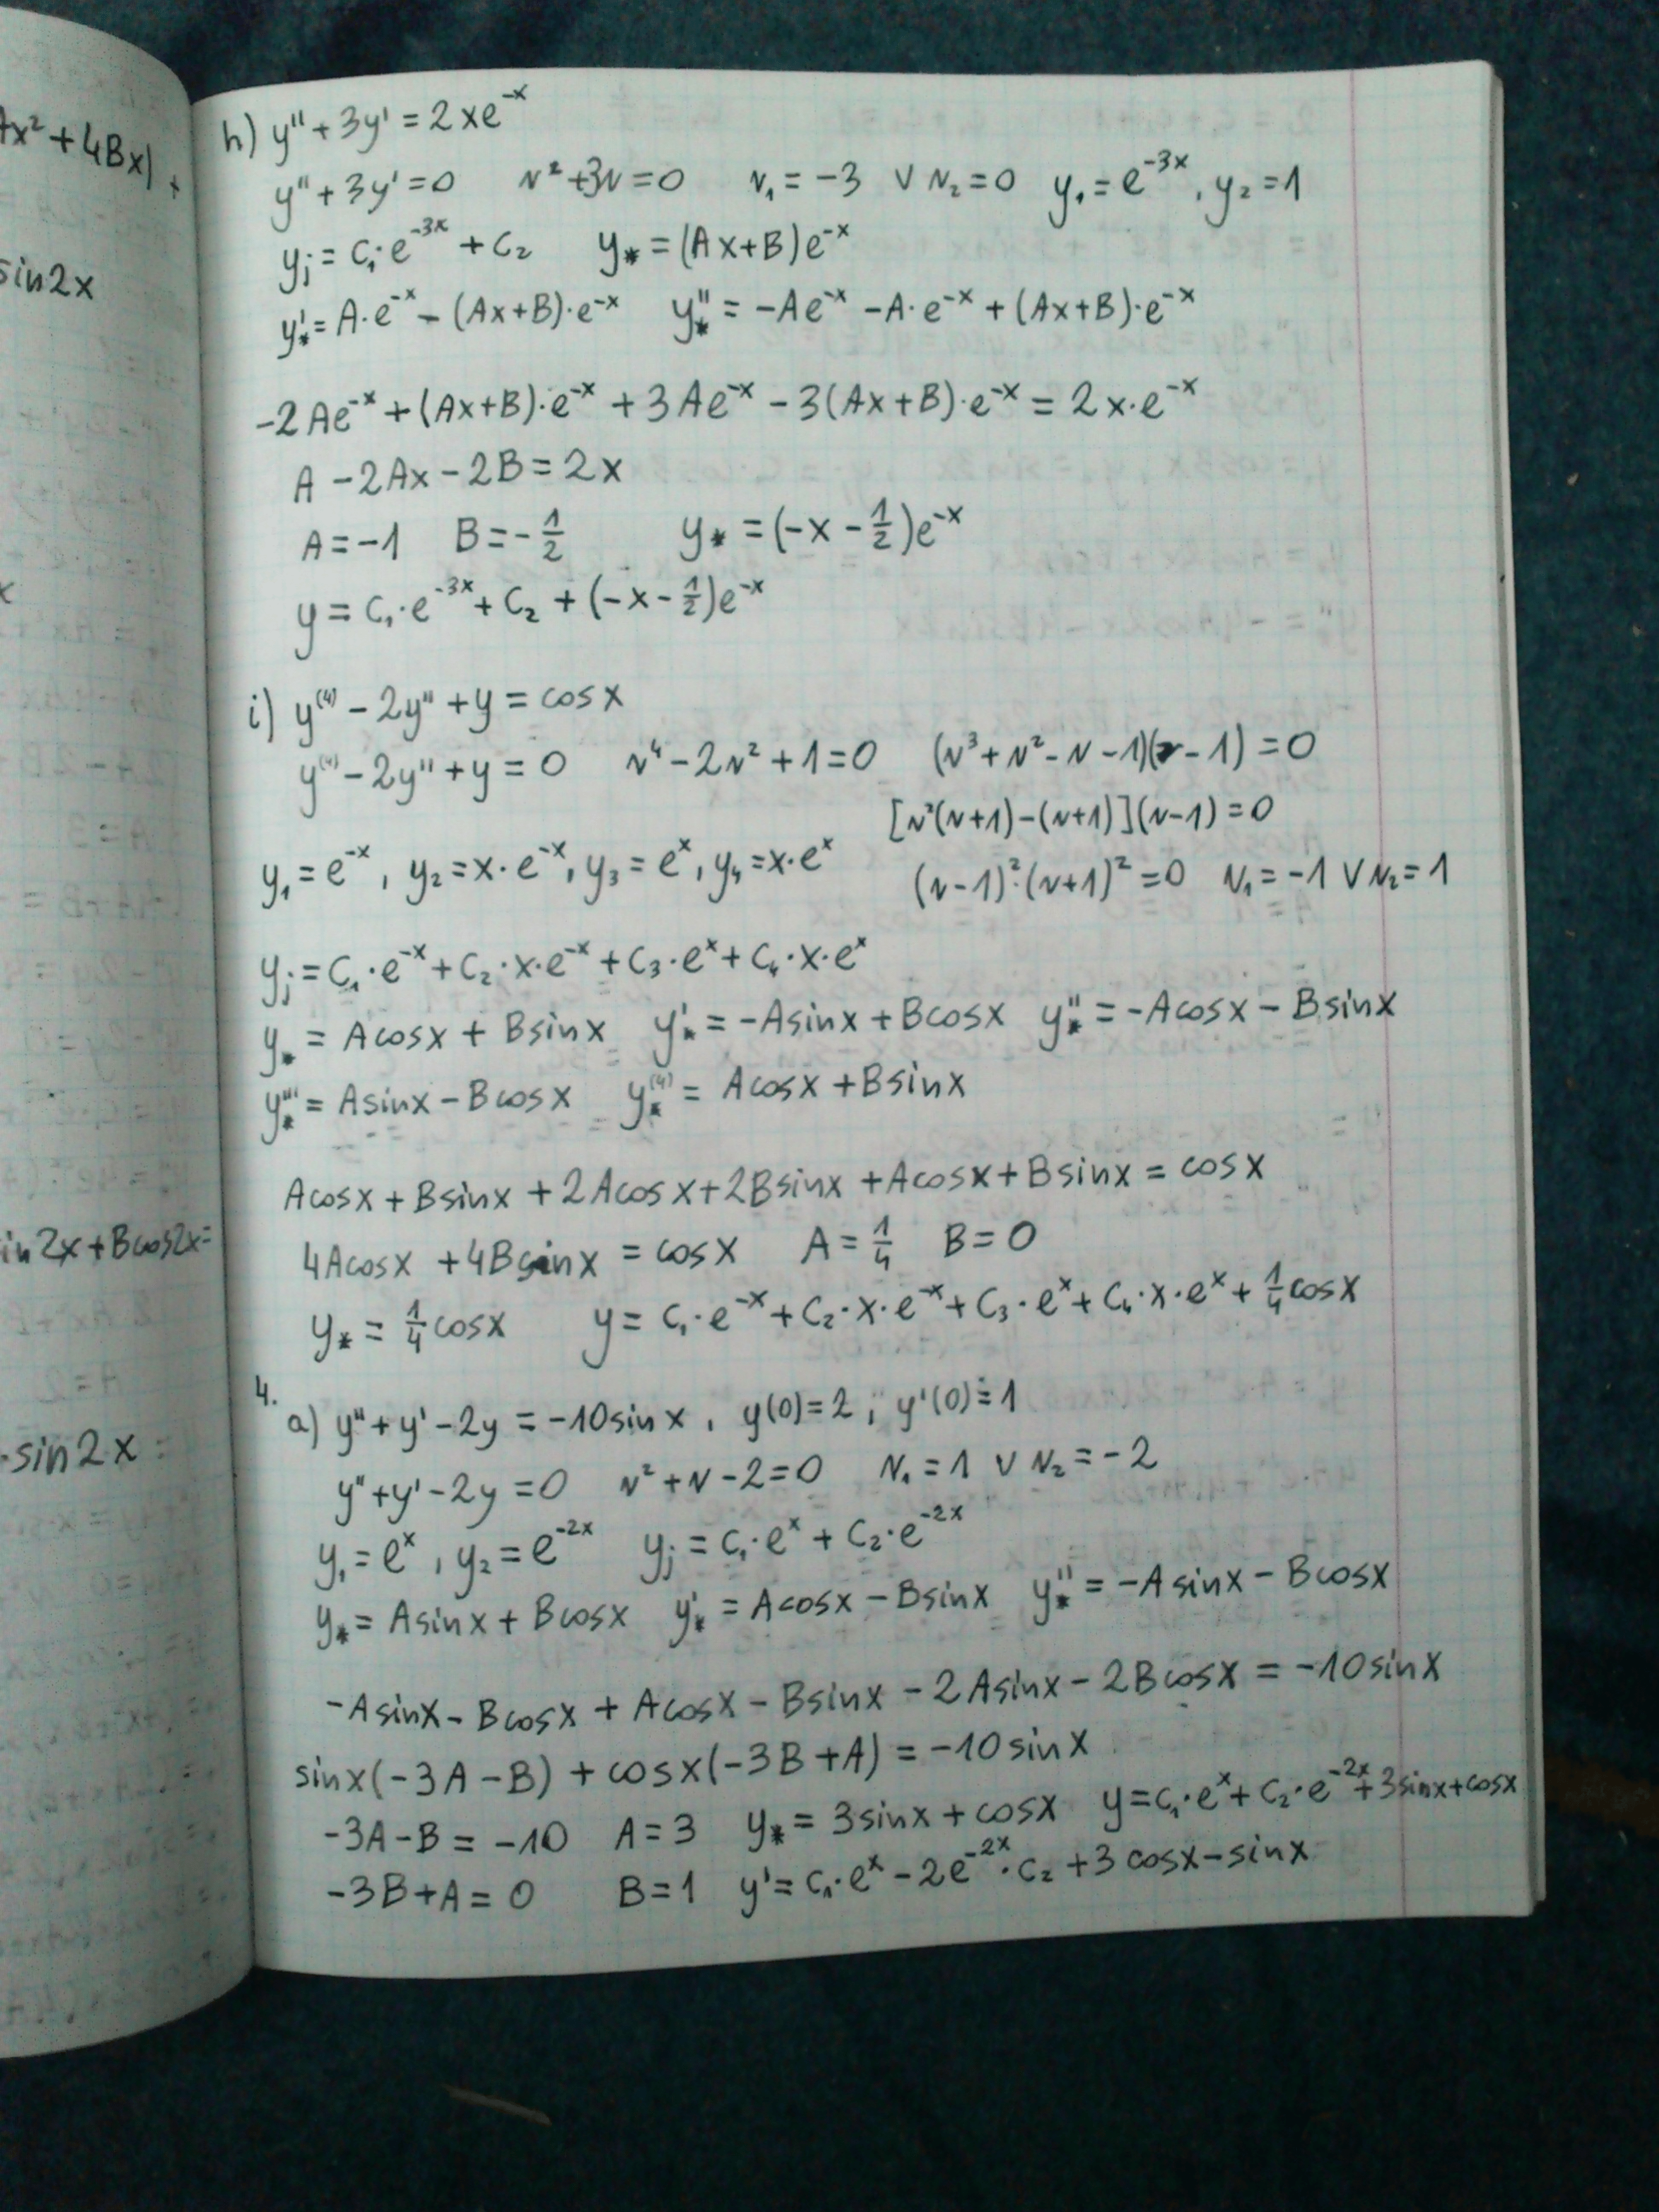 Ax² + 4Bx) +
sin2x
x
in2x+Bcos2x=
·sin2x
h) y'' + 3y' = 2xe⁻ˣ
y'' + 3y' = 0 r² + 3r = 0 r₁ = -3 ∨ r₂ = 0 y₁ = e⁻³ˣ, y₂ = 1
yⱼ = C₁·e⁻³ˣ + C₂ y* = (Ax+B)e⁻ˣ
y*' = A·e⁻ˣ - (Ax+B)·e⁻ˣ y*'' = -Ae⁻ˣ - A·e⁻ˣ + (Ax+B)·e⁻ˣ
-2Ae⁻ˣ + (Ax+B)·e⁻ˣ + 3Ae⁻ˣ - 3(Ax+B)·e⁻ˣ = 2x·e⁻ˣ
A - 2Ax - 2B = 2x
A = -1 B = -1/2 y* = (-x - 1/2)e⁻ˣ
y = C₁·e⁻³ˣ + C₂ + (-x - 1/2)e⁻ˣ
i) y⁽⁴⁾ - 2y'' + y = cosx
y⁽⁴⁾ - 2y'' + y = 0 r⁴ - 2r² + 1 = 0 (r³ + r² - r - 1)(r - 1) = 0
[r²(r+1) - (r+1)](r-1) = 0
y₁ = e⁻ˣ, y₂ = x·e⁻ˣ, y₃ = eˣ, y₄ = x·eˣ (r-1)²·(r+1)² = 0 r₁ = -1 ∨ r₂ = 1
yⱼ = C₁·e⁻ˣ + C₂·x·e⁻ˣ + C₃·eˣ + C₄·x·eˣ
y* = Acosx + Bsinx y*' = -Asinx + Bcosx y*'' = -Acosx - Bsinx
y*''' = Asinx - Bcosx y*⁽⁴⁾ = Acosx + Bsinx
Acosx + Bsinx + 2Acosx + 2Bsinx + Acosx + Bsinx = cosx
4Acosx + 4Bsinx = cosx A = 1/4 B = 0
y* = 1/4 cosx y = C₁·e⁻ˣ + C₂·x·e⁻ˣ + C₃·eˣ + C₄·x·eˣ + 1/4 cosx
4.
a) y'' + y' - 2y = -10sinx, y(0) = 2; y'(0) = 1
y'' + y' - 2y = 0 r² + r - 2 = 0 r₁ = 1 ∨ r₂ = -2
y₁ = eˣ, y₂ = e⁻²ˣ yⱼ = C₁·eˣ + C₂·e⁻²ˣ
y* = Asinx + Bcosx y*' = Acosx - Bsinx y*'' = -Asinx - Bcosx
-Asinx - Bcosx + Acosx - Bsinx - 2Asinx - 2Bcosx = -10sinx
sinx(-3A - B) + cosx(-3B + A) = -10sinx
-3A - B = -10 A = 3 y* = 3sinx + cosx y = C₁·eˣ + C₂·e⁻²ˣ + 3sinx + cosx
-3B + A = 0 B = 1 y' = C₁·eˣ - 2e⁻²ˣ·C₂ + 3cosx - sinx